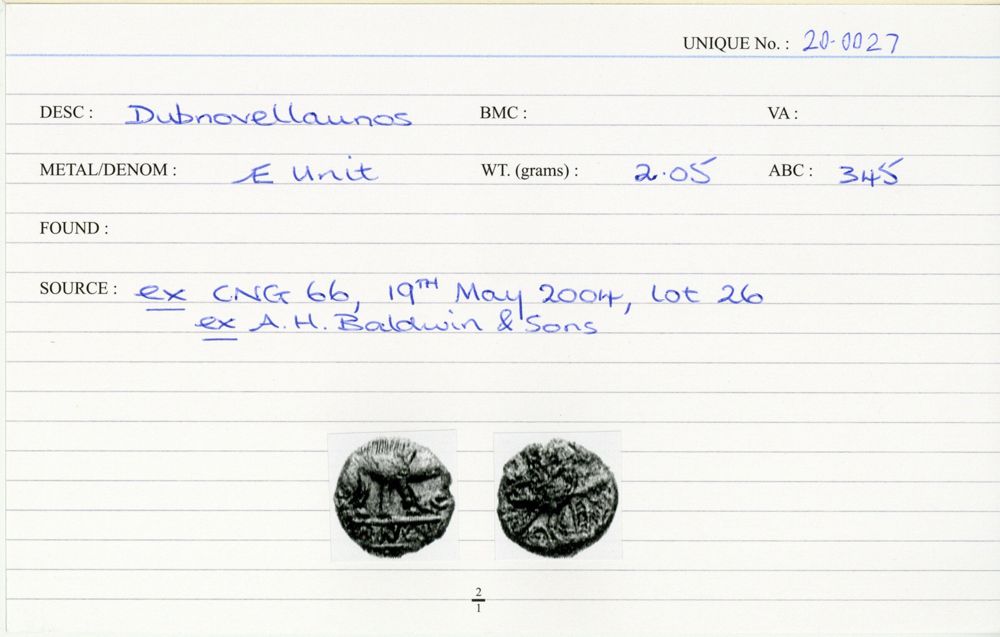 UNIQUE No. : 20-0027
DESC : Dubnovellaunos BMC : VA :
METAL/DENOM : Æ Unit WT. (grams) : 2.05 ABC : 345
FOUND :
SOURCE : ex CNG 66, 19TH May 2004, Lot 26
ex A.H. Baldwin & Sons
2
1